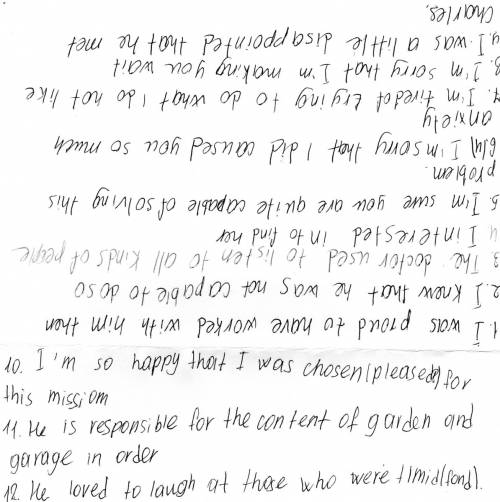 1. I was proud to have worked with him then
2. I knew that he was not capable to do so
3. The doctor used to listen to all kinds of people
4 I interested in to find her
5 I'm sure you are quite capable of solving this
problem.
I'm sorry that I did caused you so much
anxiety
7. I'm tired of trying to do what I do not like
8. I'm sorry that I'm making you wait
9. I was a little disappointed that he met
Charles.
10. I,m so happy that I was chosen(pleased) for
this mission
11. He is responsible for the content of garden and
garage in order
12. He loved to laugh at those who were timid(fond).